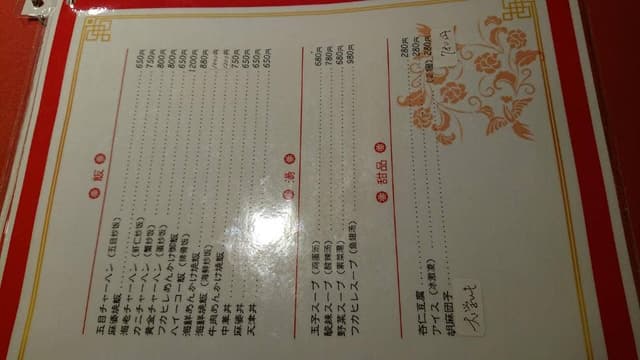 飯
五目チャーハン（五目炒饭） 650円
麻婆焼飯 750円
海老チャーハン（虾仁炒饭） 800円
カニチャーハン（蟹炒饭） 800円
黄金チャーハン（蛋炒饭） 650円
フカヒレあんかけ御飯 1200円
ハイーコー飯（排骨饭） 880円
海鮮あんかけ焼飯
海鮮焼飯（海鮮炒饭）
牛肉あんかけ焼飯 750円
中華丼 650円
麻婆丼 650円
天津丼 650円
湯
玉子スープ（鸡蛋汤） 680円
酸辣スープ（酸辣汤） 780円
野菜スープ（素菜湯） 680円
フカヒレスープ（鱼翅汤） 980円
甜品
杏仁豆腐 280円
アイス（冰激凌） 280円
胡麻団子 280円
大学いも 780円